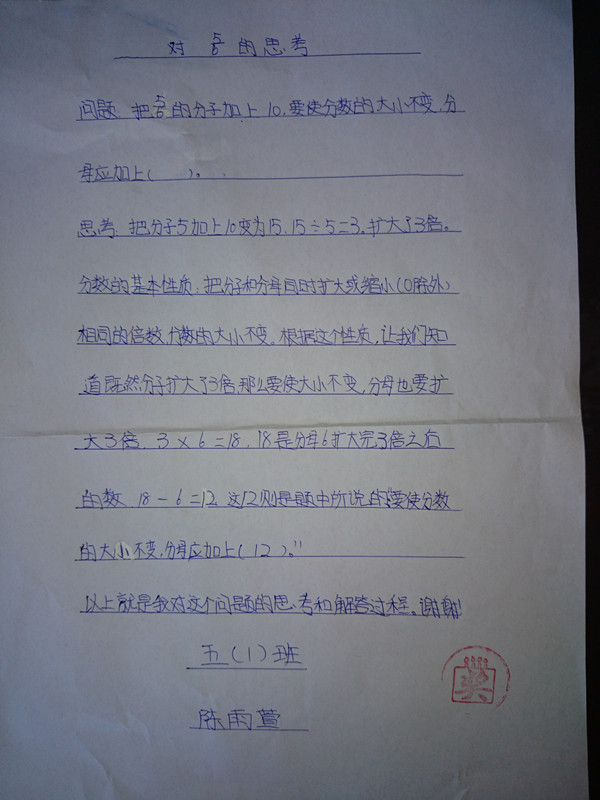 对5/6的思考
问题:把5/6的分子加上10,要使分数的大小不变,分
母应加上( )。
思考:把分子5加上10变为15.15÷5=3。扩大了3倍。
分数的基本性质:把分子和分母同时扩大或缩小(0除外)
相同的倍数,分数的大小不变。根据这个性质,让我们知
道既然分子扩大了3倍,那么要使大小不变,分母也要扩
大3倍,3×6=18,18是分母6扩大完3倍之后
的数.18-6=12 这12则是题中所说的“要使分数
的大小不变,分母应加上(12)。”
以上就是我对这个问题的思考和解答过程。谢谢!
五(1)班
陈雨萱
奖